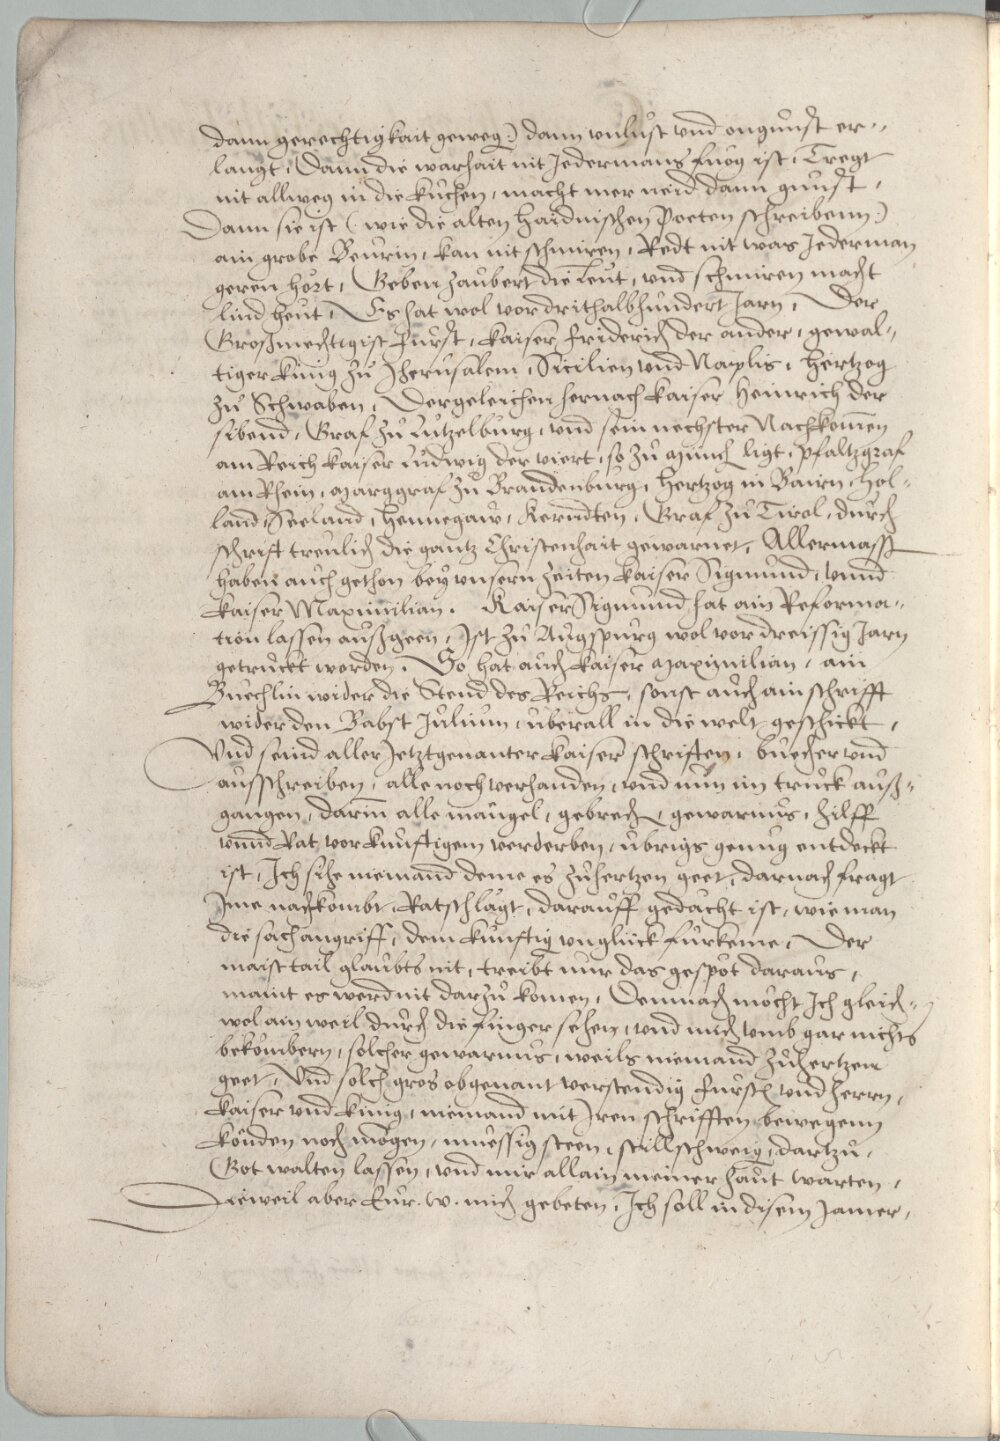 dann gerechtigkait geweg:) dann vnlust vnd vngunst er-
langt, Dann die warhait nit Jedermans fuog ist, Tregt
nit allweg in die kuchen, macht mer neid dann gunst,
Dann sie ist (wie die alten haidnischen Poeten schreibenn:)
ain grobe Beurin, kan nit schmiren, Redt nit was Jederman
geren hört, Geben zaubert die leut, vnd schmiren macht
lind heut, Es hat wol vor drithalbhundert Jarn, Der
Großmechtigist Fürst, kaiser Friderich der ander, gewal-
tiger künig zu Jherusalem, Sicilien vnd Naplis, Hertzog
zu Schwaben, Dergeleichen hernach kaiser Heinrich der
sibend, Graf zu Lutzelburg, vnd sein nechster Nachkomen
am Reich kaiser Ludwig der viert, so zu Münch ligt, Pfaltzgraf
am Rhein, Marggraf zu Brandenburg, Hertzog in Bairn, Hol-
land, Seeland, Hennegaw, Kerndten, Graf zu Tirol, durch
schrift treulich die gantz Christenhait gewarnet, Allermasst
haben auch gethon bey vnsern zeiten kaiser Sigmund, vnnd
kaiser Maximilian. Kaiser Sigmund hat ain Reforma-
tion lassen außgeen, Jst zu Augspurg wol vor dreissig Jarn
getruckt worden. So hat auch kaiser Maximilian, ain
Buechlin wider die Stend des Reichs, sonst auch ain schrifft
wider den Babst Julium, überall in die welt geschickt,
Vnd seind aller Jetztgenanter kaiser schriften, buecher vnd
ausschreiben, alle noch verhanden, vnd nun im truck auß-
gangen, darin alle mängel, gebrech, gewarnus, hilff
vnnd Rat, vor künftigem verderben, übrigs genug entdeckt
ist, Ich sihe niemand deme es zuhertzen geet, darnach fragt
Jme nachkombt, Ratschlagt, darauff gedacht ist, wie man
die sach angriff, dem künftig vnglück fürkeme, Der
maist tail glaubts nit, treibt nur das gespöt daraus,
maint es werd nit darzu komen, Demnach möcht Ich gleich-
wol ain weil durch die finger sehen, vnd mich vmb gar nichts
bekömbern, solcher gewarnus, weils niemand zuhertzen
geet, Vnd solch gros obgenant verstendig Fürstn vnd herrn,
kaiser vnd künig, niemand mit Jren schrifften bewegenn
könden noch mögen, muessig steen, stillschweig, dartzu,
Got walten lassen, vnd mir allain meiner haut warten,
Dieweil aber Eur. W. mich gebeten, Ich soll in disem Jamer,